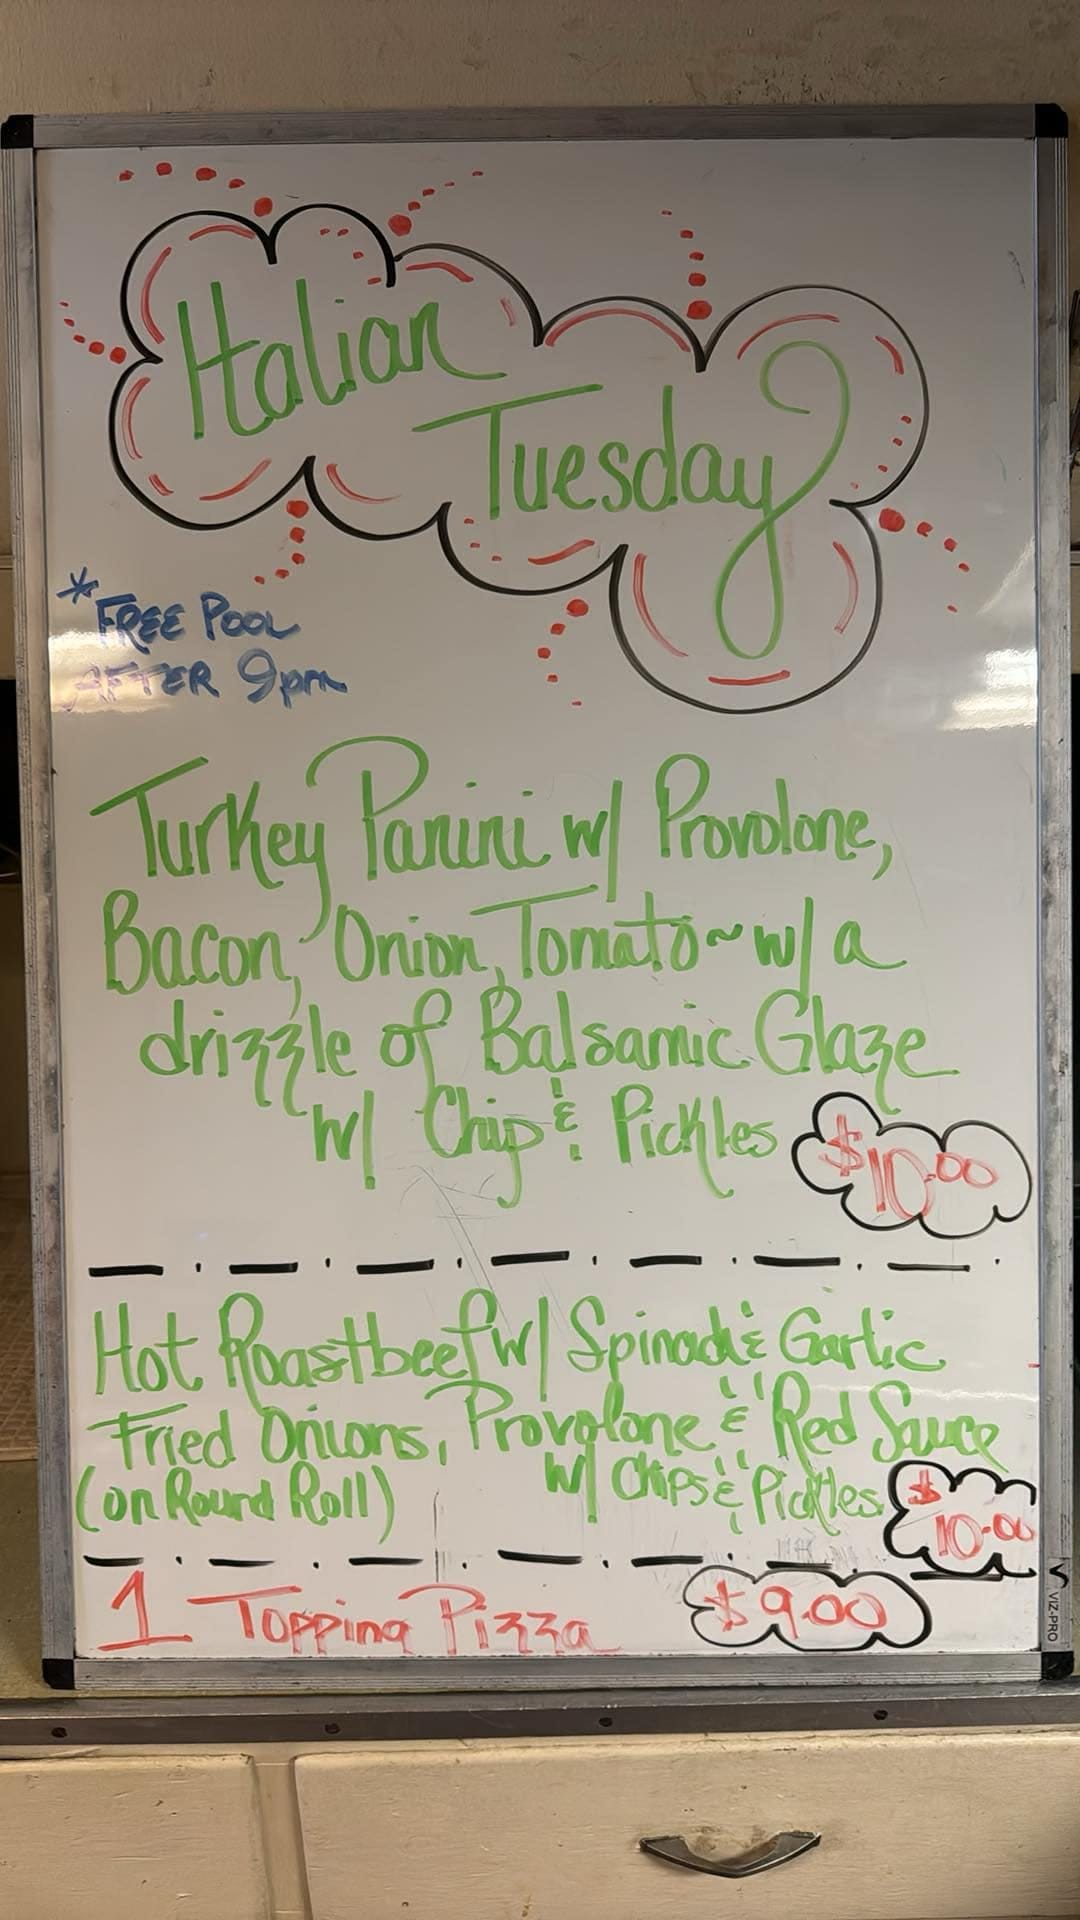 Italian
Tuesday
*FREE POOL
AFTER 9pm
Turkey Panini w/ Provolone,
Bacon, Onion, Tomato~w/ a
drizzle of Balsamic Glaze
w/ Chip & Pickles
$10.00
Hot Roastbeef w/ Spinach & Garlic
Fried Onions, Provolone & "Red Sauce"
(on Round Roll) w/ Chips & Pickles
$10.00
1 Topping Pizza $9.00
VIZ-PRO